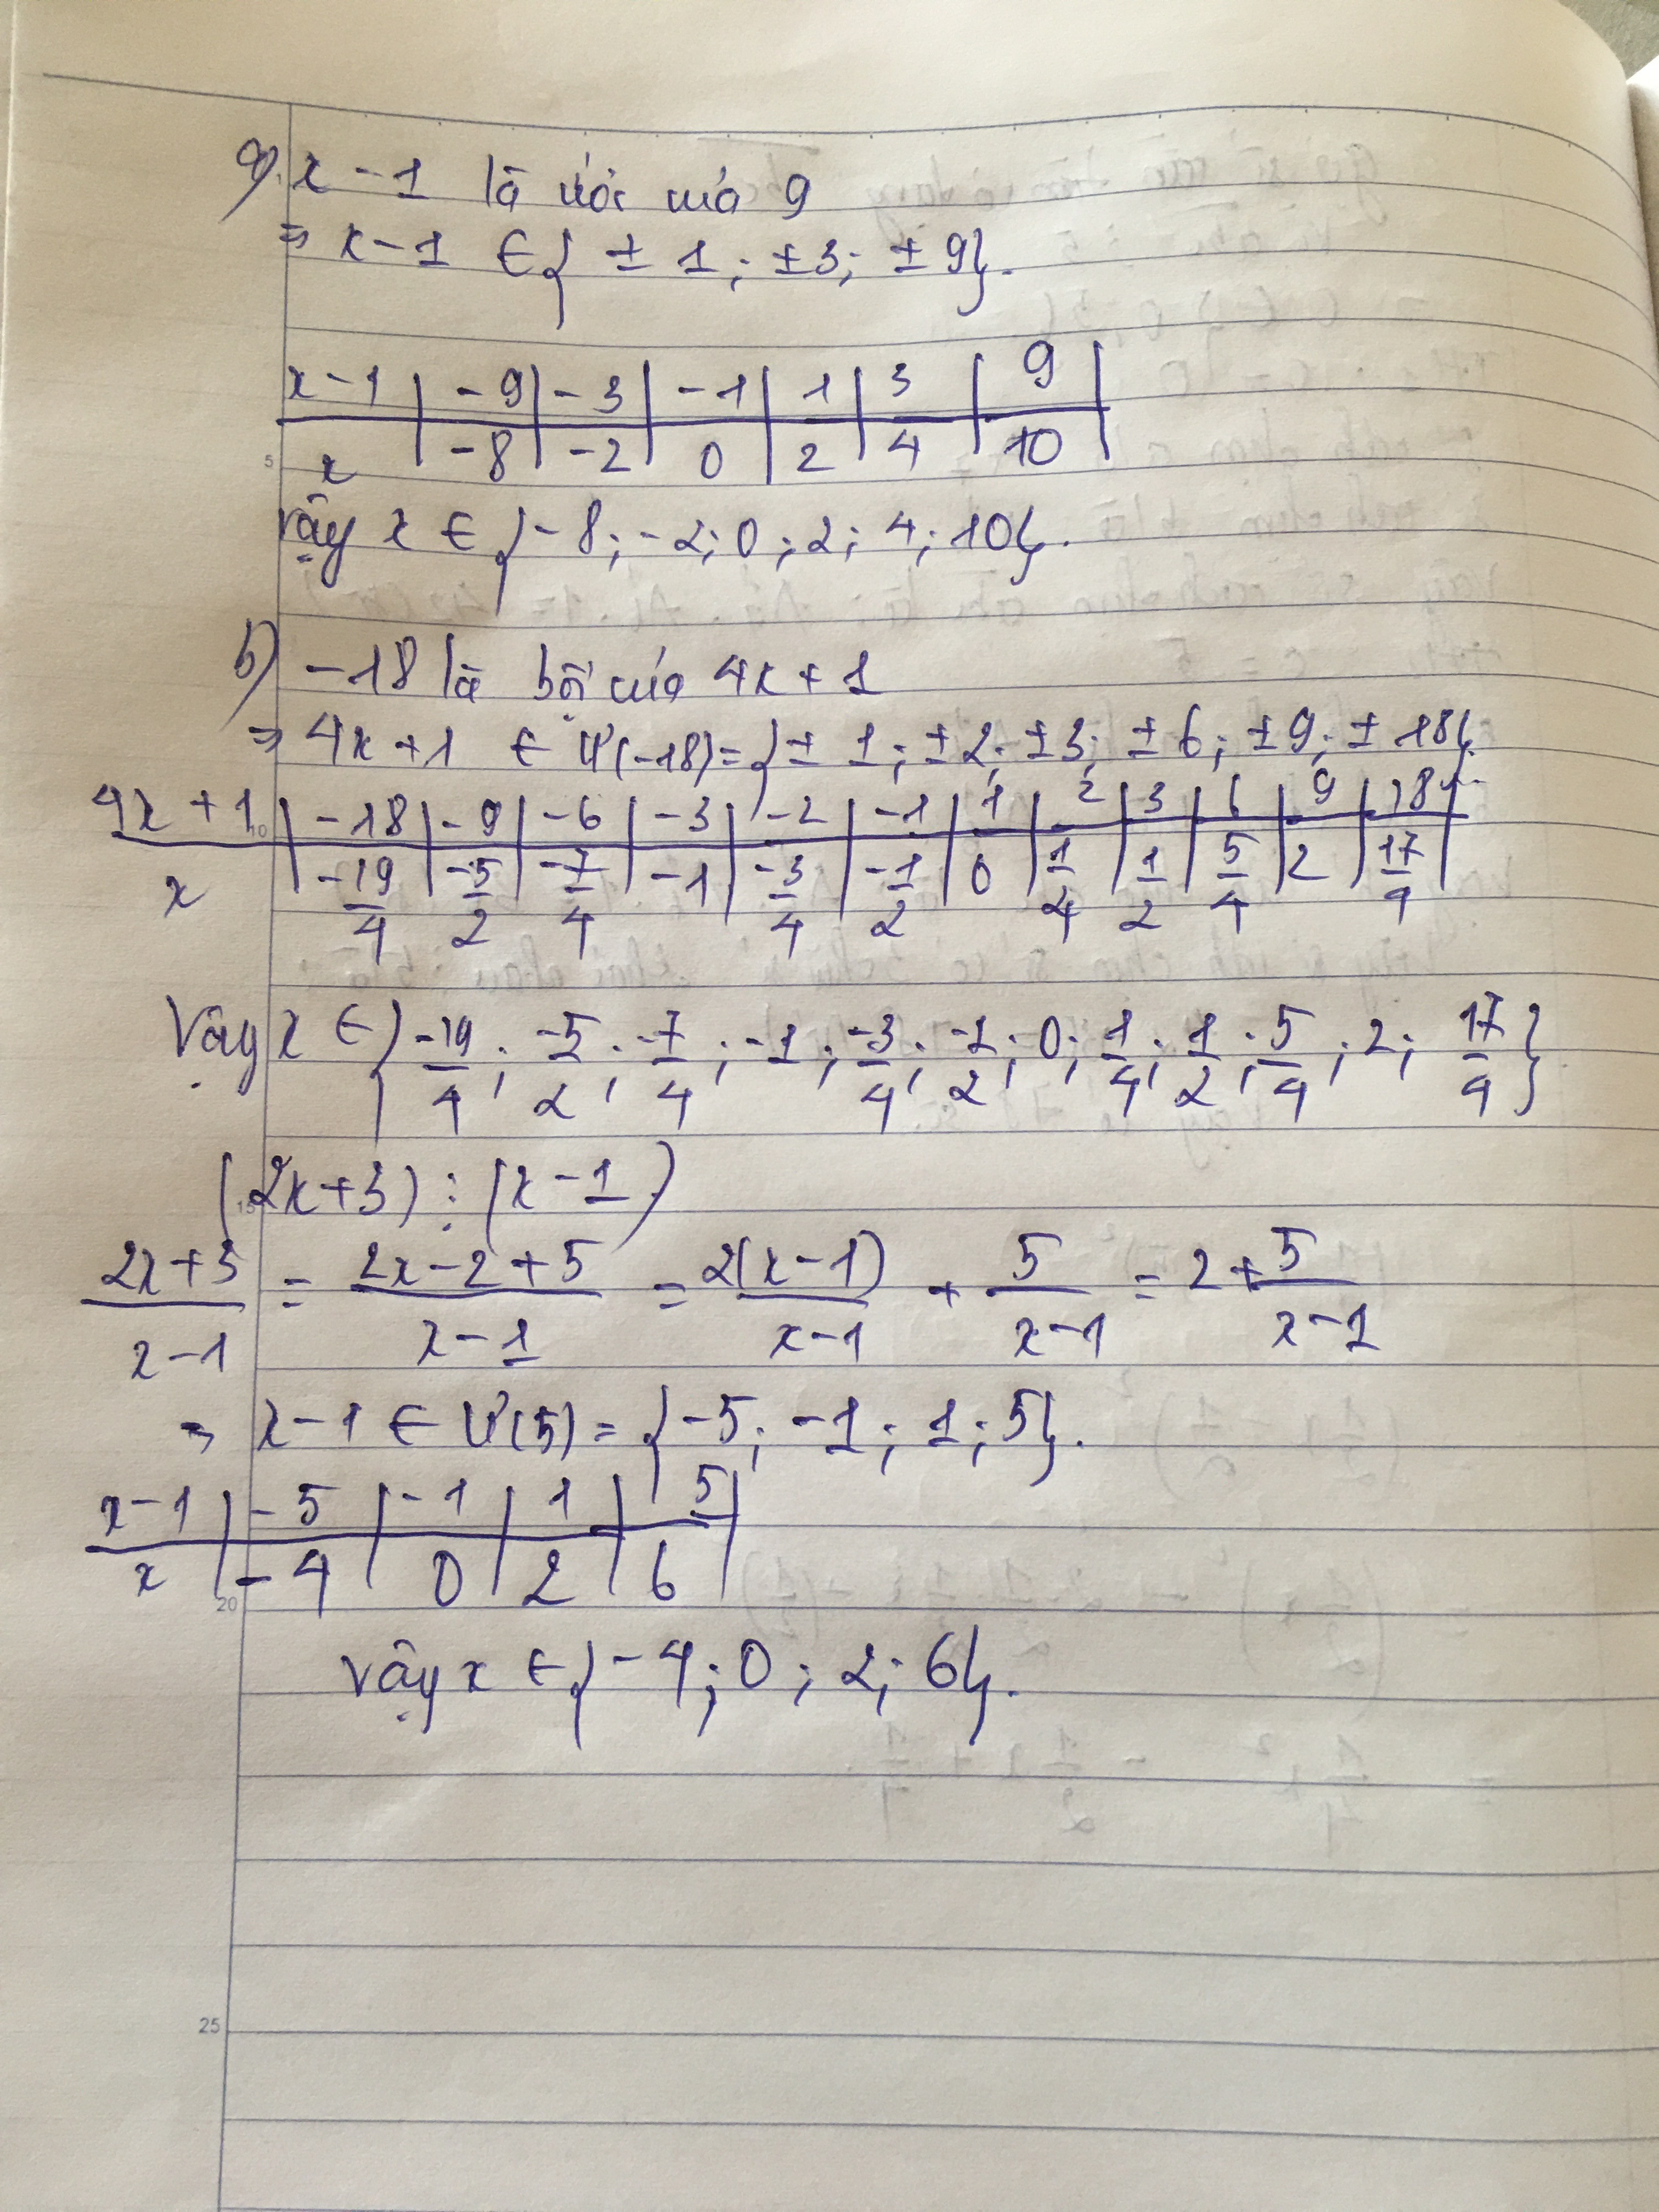 a) x - 1 là ước của 9
=> x - 1 ∈ { ± 1 ; ± 3 ; ± 9 }.
x - 1 | - 9 | - 3 | - 1 | 1 | 3 | 9 |
x | - 8 | - 2 | 0 | 2 | 4 | 10 |
Vậy x ∈ { - 8 ; - 2 ; 0 ; 2 ; 4 ; 10 }.
b) - 18 là bội của 4x + 1
=> 4x + 1 ∈ Ư(-18) = { ± 1 ; ± 2 ; ± 3 ; ± 6 ; ± 9 ; ± 18 }.
4x + 1 | - 18 | - 9 | - 6 | - 3 | - 2 | - 1 | 1 | 2 | 3 | 6 | 9 | 18
x | -19/4 | -5/2 | -7/4 | - 1 | -3/4 | -1/2 | 0 | 1/4 | 1/2 | 5/4 | 2 | 17/4 |
Vậy x ∈ { -19/4 ; -5/2 ; -7/4 ; -1 ; -3/4 ; -1/2 ; 0 ; 1/4 ; 1/2 ; 5/4 ; 2 ; 17/4 }
(2x + 3) ⋮ (x - 1)
2x + 3 / x - 1 = 2x - 2 + 5 / x - 1 = 2(x - 1) / x - 1 + 5 / x - 1 = 2 + 5 / x - 1
=> x - 1 ∈ Ư(5) = { - 5 ; - 1 ; 1 ; 5 }.
x - 1 | - 5 | - 1 | 1 | 5 |
x | - 4 | 0 | 2 | 6 |
Vậy x ∈ { - 4 ; 0 ; 2 ; 6 }.
5
10
15
20
25